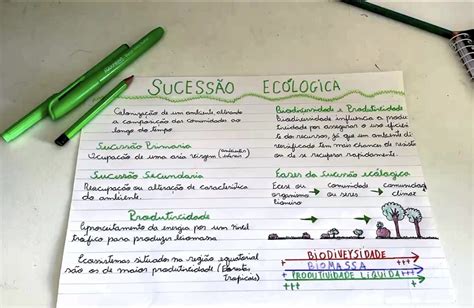 SUCESSÃO ECOLÓGICA
Colonização de um ambiente alterando
a composição das comunidades ao
longo do tempo
Sucessão Primaria
Ocupação de uma area virgem (ambientes
Sucessão Secundaria
Reocupação ou alteração de caracteristica
do ambiente.
Produtividade
Aproveitamento da energia por um nivel
trófico para produzir biomassa
Ecossistemas situados na região equatorial
são os de maior produtividade (florestas
tropicais)
Biodiversidade e Produtividade
Biodiversidade influencia a produ
tividade por assegurar o uso eficien
te dos recursos, já que um ambiente di
versificado tem mais chances de resistir
ou de se recuperar rapidamente.
Fases da sucessão ecológica
Ecese ou comunidade comunidade
organismo ou seres climax
BIODIVERSIDADE +++
BIOMASSA +++
+++ PRODUTIVIDADE LIQUIDA +